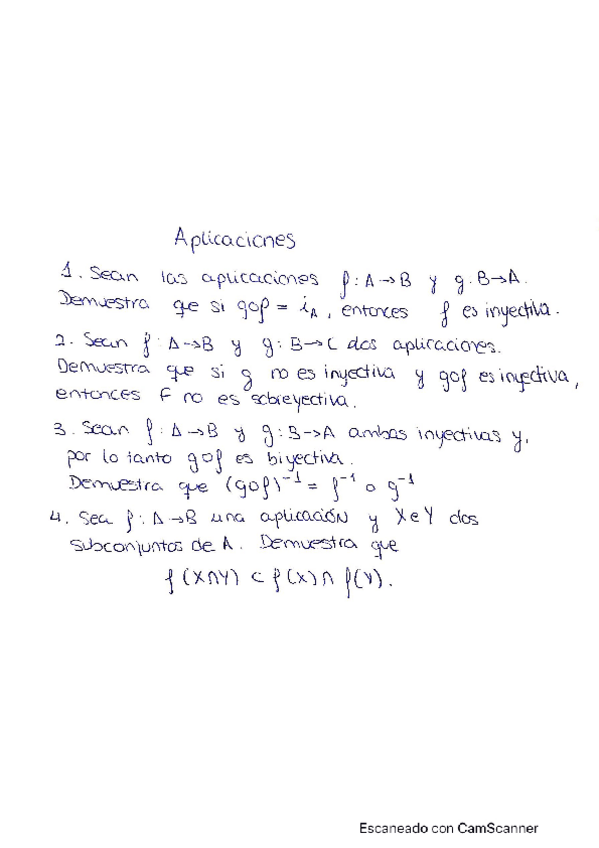 Aplicaciones
1. Sean las aplicaciones f: A→B y g: B→A.
Demuestra que si gof = i_A, entonces f es inyectiva.
2. Sean f: A→B y g: B→C dos aplicaciones.
Demuestra que si g no es inyectiva y gof es inyectiva,
entonces F no es sobreyectiva.
3. Sean f: A→B y g: B→A ambas inyectivas y,
por lo tanto gof es biyectiva.
Demuestra que (gof)⁻¹ = f⁻¹ o g⁻¹
4. Sea f: A→B una aplicación y X e Y dos
subconjuntos de A. Demuestra que
f(X∩Y) ⊂ f(X)∩ f(Y).
Escaneado con CamScanner